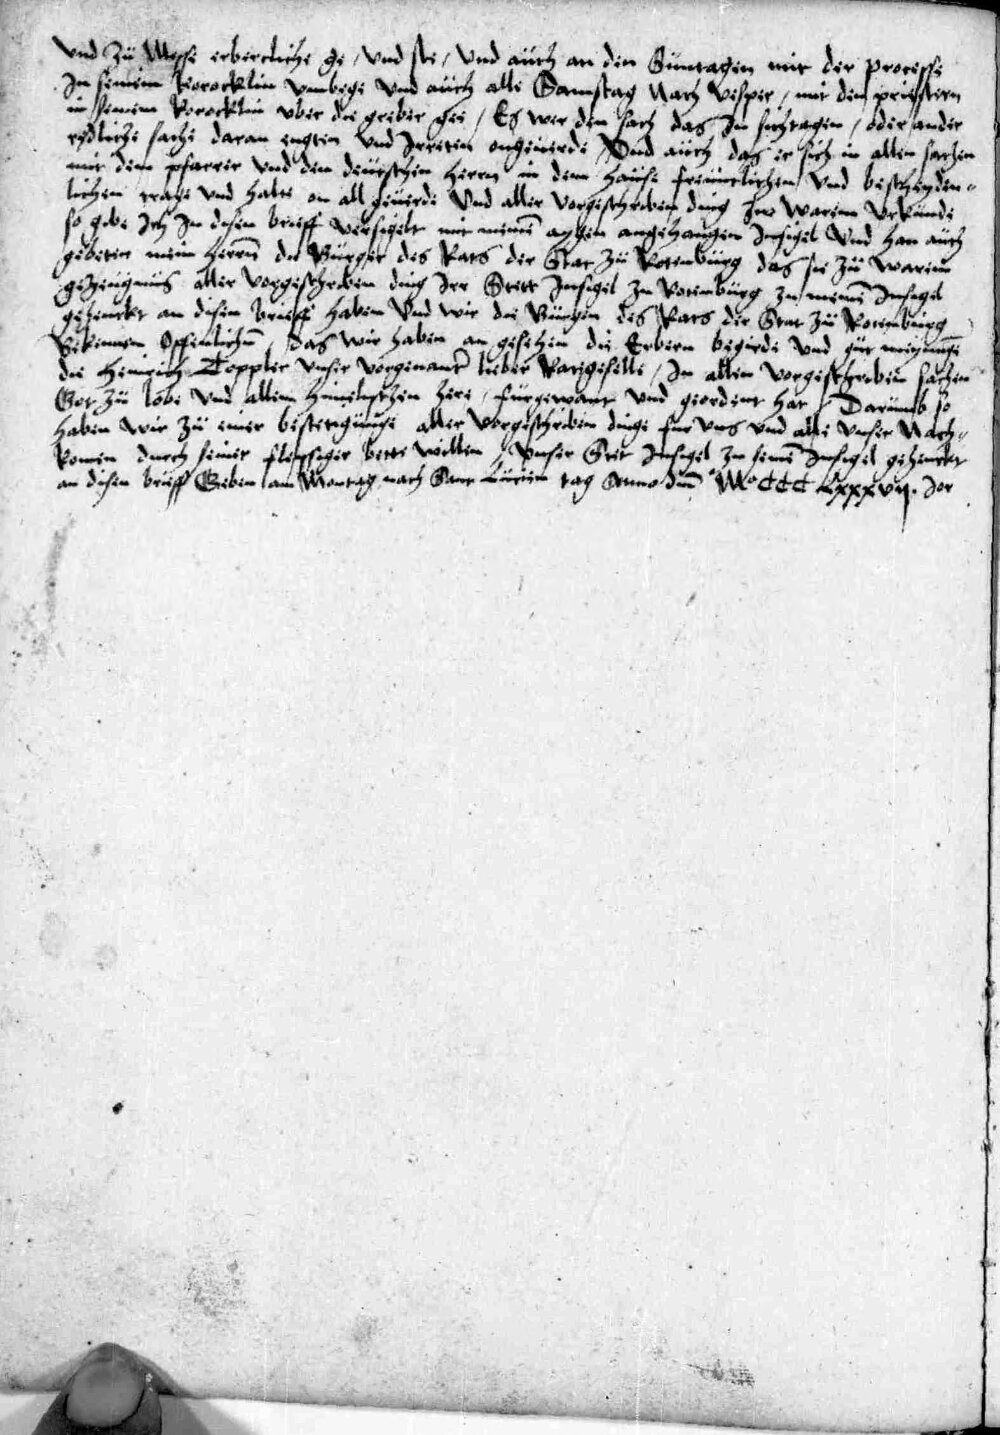 Vnd zu Messe erbercliche ge / vnd ste / vnd auch an den Suntagen mit der processe
In seinem korocklin vmbege vnd auch alle Samstag Nach vesper / mit den priestern
in seinem korocklin vber die greber gee / Es wer den sach das In sichtagen / oder ander
redliche sache daran engten vnd Irreten ongeuerde / Vnd auch das er sich in allen sachen
mit dem pfarrer vnd den deutschen herrn in dem hause freuntlichen vnd bescheyden-
lichen trage vnd halte on all geuerde Vnd aller vorgeschreben ding zw warem vrkunde
so gebe Ich In disen brieff versigelt mit meinem aygen angehangen Insigel Vnd han auch
gebeten mein herrn die Burger des Rats der Stat zu Rotenburg das sie zu warem
gezeugnus aller vorgeschreben ding Irr Stett Insigel zu Rotenburg zu meinem Insigel
gehenckt an disen brieff haben Vnd wir die Burger des Rats der Stat zu Rotenburg
Bekennen Offenlichen / das wir haben an gesehen die Erbern begirde vnd gut meynunge
die Heinrich Toppler vnser vorgenanter lieber Ratgeselle / In allen vorgeschreben sachen
Got zu lobe vnd allem himelischen here / furgewant vnd geordent hat / Darumb so
haben wir zu einer bestetigunge aller vorgeschreben dinge fur vns vnd alle vnser Nach-
komen durch seiner fleyssiger bette willen / vnser Stet Insigel zu seinem Insigel gehenckt
an disen brieff Geben am Montag nach Sant Lucien tag Anno dm̄ M° CCC Lxxxvij. Jor